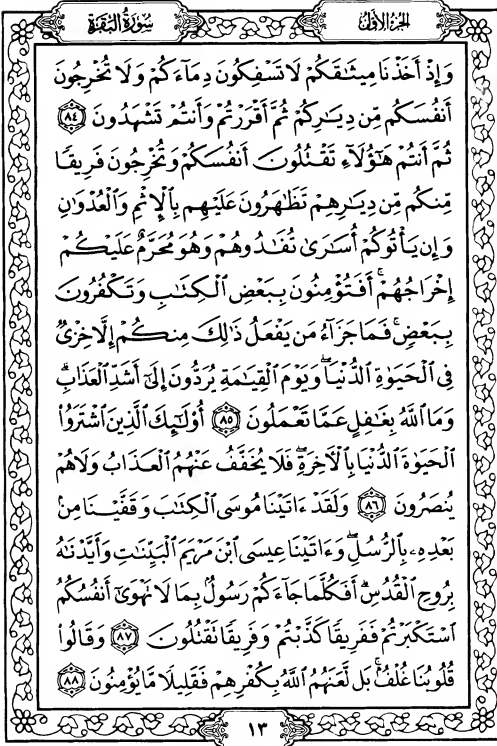 سُورَةُ البَقَرَةِ
الجُزءُ الأوَّلُ
وَإِذْ أَخَذْنَا مِيثَٰقَكُمْ لَا تَسْفِكُونَ دِمَآءَكُمْ وَلَا تُخْرِجُونَ
أَنفُسَكُم مِّن دِيَٰرِكُمْ ثُمَّ أَقْرَرْتُمْ وَأَنتُمْ تَشْهَدُونَ ٨٤
ثُمَّ أَنتُمْ هَٰٓؤُلَآءِ تَقْتُلُونَ أَنفُسَكُمْ وَتُخْرِجُونَ فَرِيقًا
مِّنكُم مِّن دِيَٰرِهِمْ تَظَٰهَرُونَ عَلَيْهِم بِٱلْإِثْمِ وَٱلْعُدْوَٰنِ
وَإِن يَأْتُوكُمْ أُسَٰرَىٰ تُفَٰدُوهُمْ وَهُوَ مُحَرَّمٌ عَلَيْكُمْ
إِخْرَاجُهُمْ ۚ أَفَتُؤْمِنُونَ بِبَعْضِ ٱلْكِتَٰبِ وَتَكْفُرُونَ
بِبَعْضٍ ۚ فَمَا جَزَآءُ مَن يَفْعَلُ ذَٰلِكَ مِنكُمْ إِلَّا خِزْىٌ
فِى ٱلْحَيَوٰةِ ٱلدُّنْيَا ۖ وَيَوْمَ ٱلْقِيَٰمَةِ يُرَدُّونَ إِلَىٰٓ أَشَدِّ ٱلْعَذَابِ ۗ
وَمَا ٱللَّهُ بِغَٰفِلٍ عَمَّا تَعْمَلُونَ ٨٥ أُو۟لَٰٓئِكَ ٱلَّذِينَ ٱشْتَرَوُا۟
ٱلْحَيَوٰةَ ٱلدُّنْيَا بِٱلْءَاخِرَةِ ۖ فَلَا يُخَفَّفُ عَنْهُمُ ٱلْعَذَابُ وَلَا هُمْ
يُنصَرُونَ ٨٦ وَلَقَدْ ءَاتَيْنَا مُوسَى ٱلْكِتَٰبَ وَقَفَّيْنَا مِنۢ
بَعْدِهِۦ بِٱلرُّسُلِ ۖ وَءَاتَيْنَا عِيسَى ٱبْنَ مَرْيَمَ ٱلْبَيِّنَٰتِ وَأَيَّدْنَٰهُ
بِرُوحِ ٱلْقُدُسِ ۗ أَفَكُلَّمَا جَآءَكُمْ رَسُولٌۢ بِمَا لَا تَهْوَىٰٓ أَنفُسُكُمُ
ٱسْتَكْبَرْتُمْ فَفَرِيقًا كَذَّبْتُمْ وَفَرِيقًا تَقْتُلُونَ ٨٧ وَقَالُوا۟
قُلُوبُنَا غُلْفٌۢ ۚ بَل لَّعَنَهُمُ ٱللَّهُ بِكُفْرِهِمْ فَقَلِيلًا مَّا يُؤْمِنُونَ ٨٨
١٣